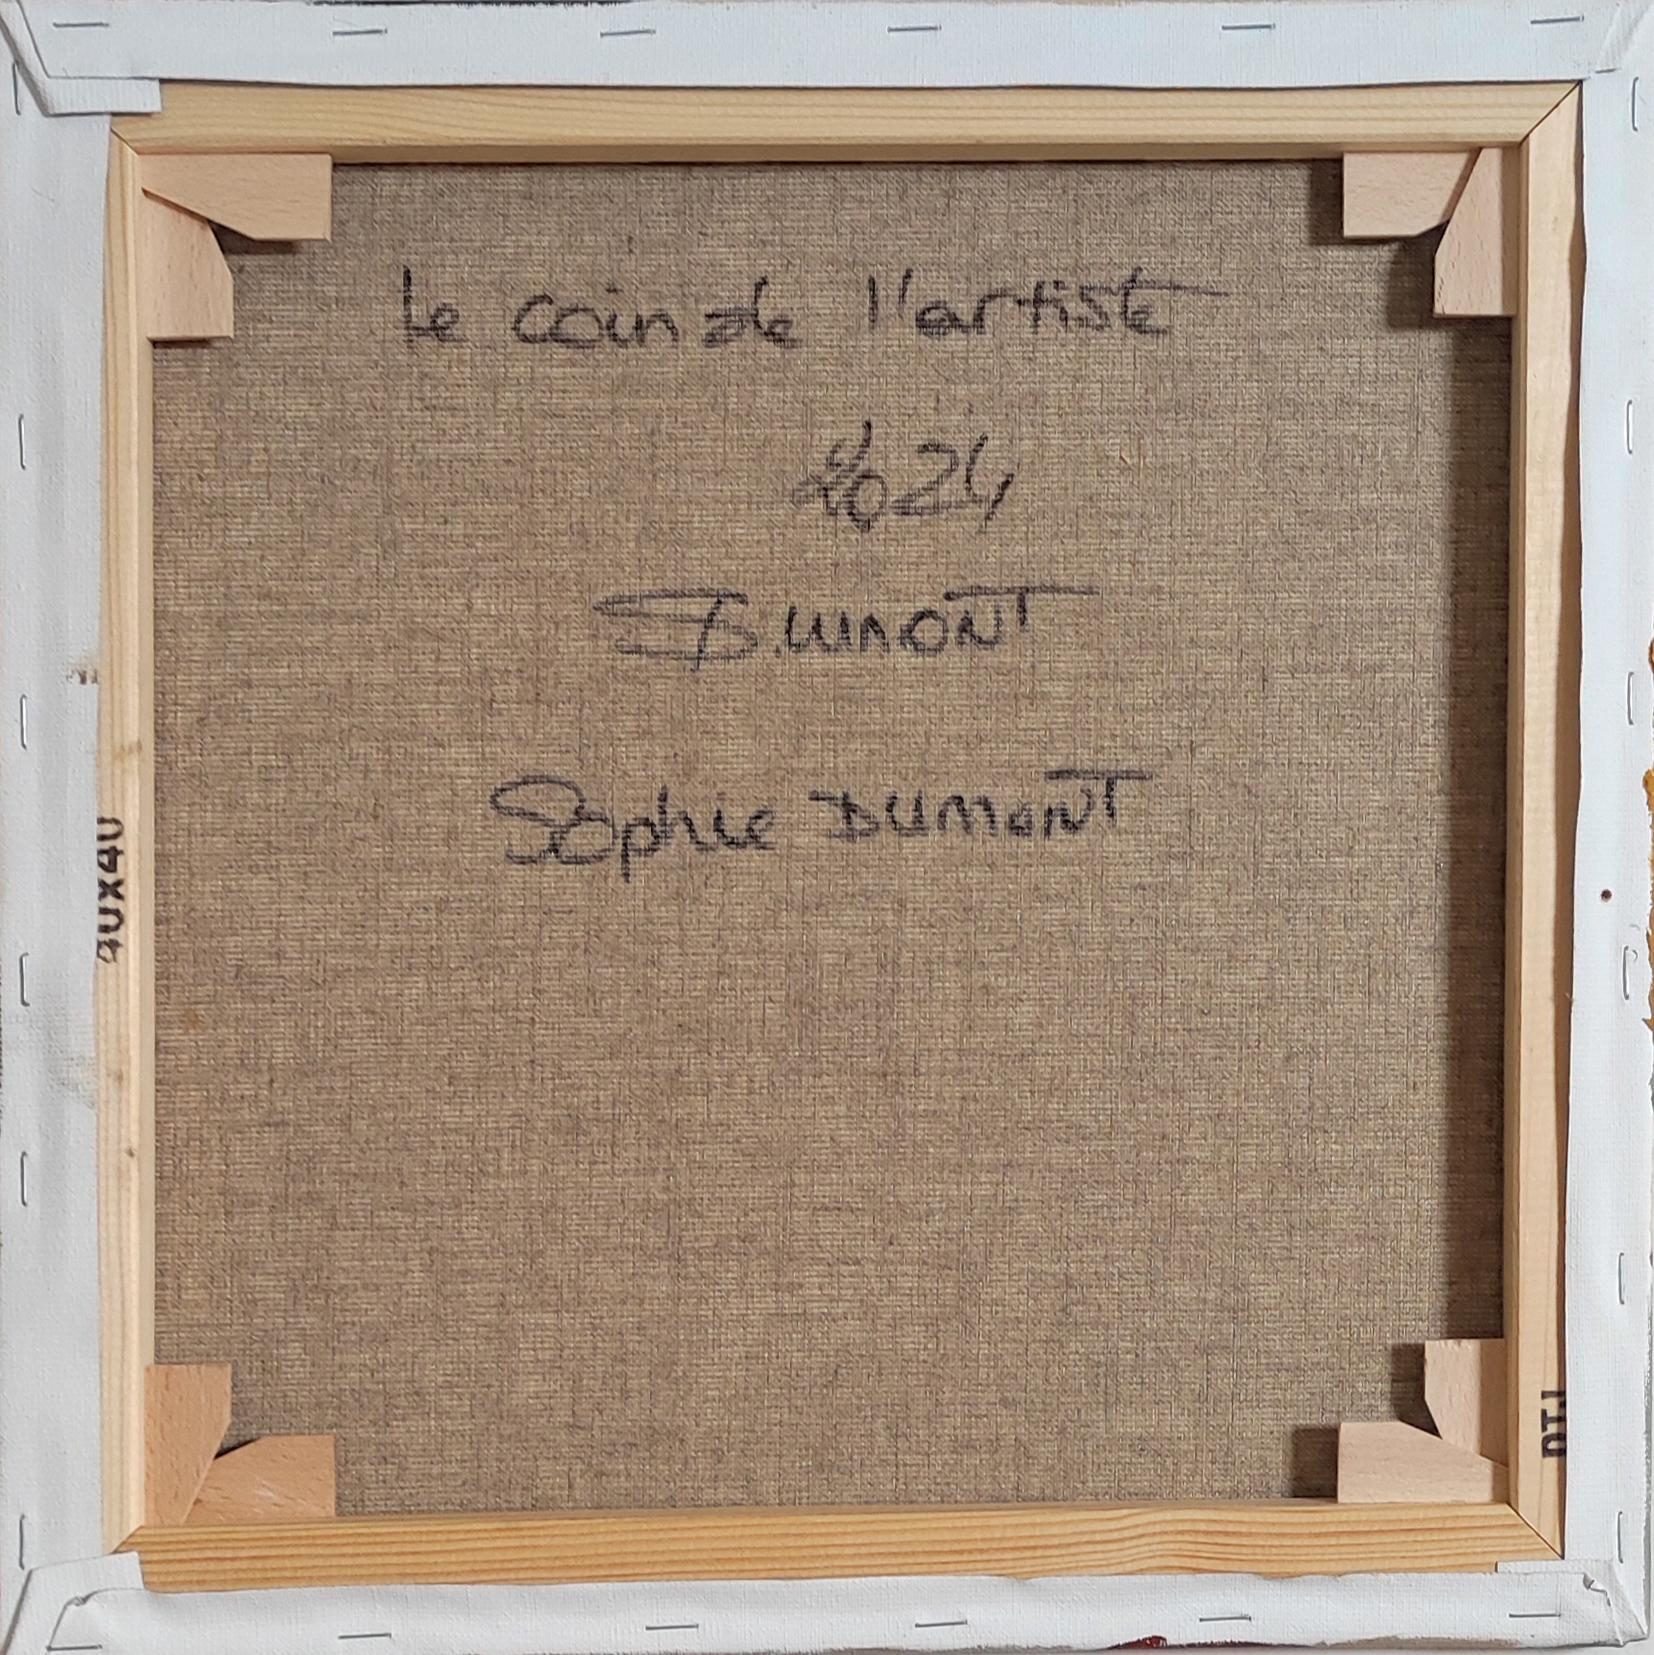 Le coin de l'artiste
2024
S.DUMONT
Sophie DUMONT
40x40